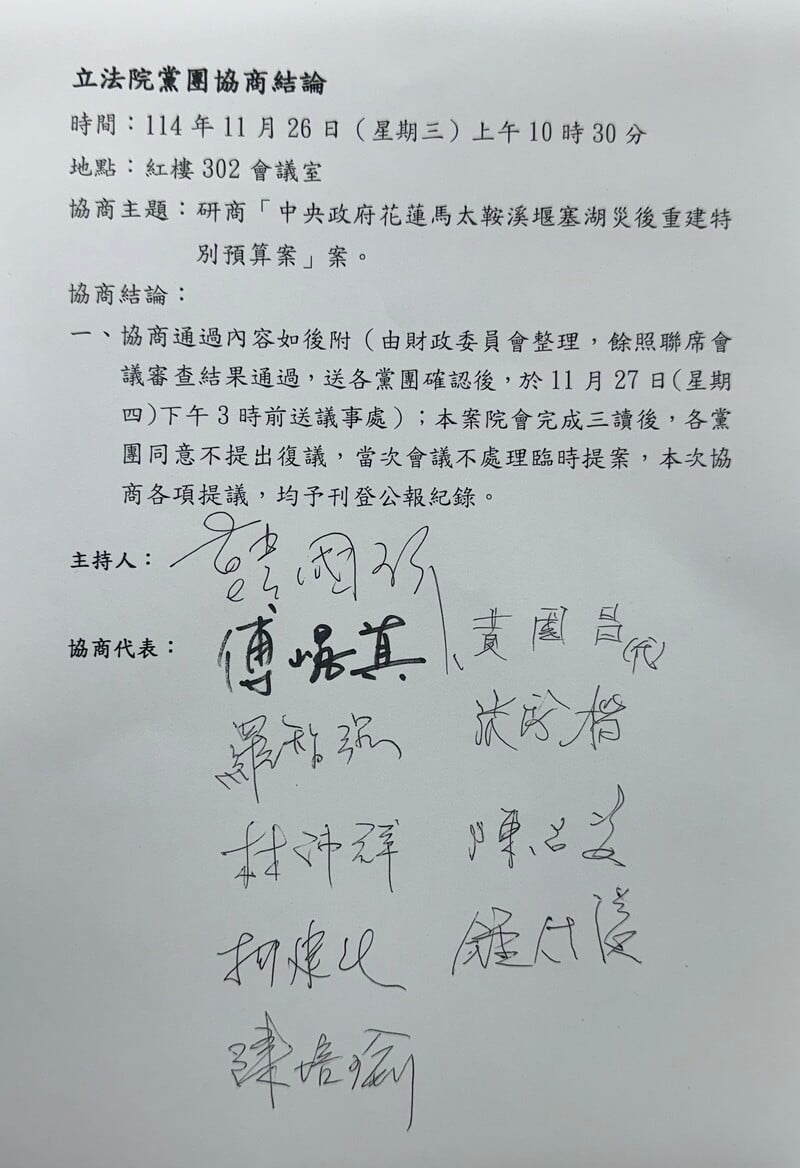 立法院黨團協商結論
時間：114 年 11 月 26 日（星期三）上午 10 時 30 分
地點：紅樓 302 會議室
協商主題：研商「中央政府花蓮馬太鞍溪堰塞湖災後重建特
別預算案」案。
協商結論：
一、協商通過內容如後附（由財政委員會整理，餘照聯席會
議審查結果通過，送各黨團確認後，於 11 月 27 日(星期
四)下午 3 時前送議事處）；本案院會完成三讀後，各黨
團同意不提出復議，當次會議不處理臨時提案，本次協
商各項提議，均予刊登公報紀錄。
主持人：韓國瑜
協商代表：傅崐萁 黃國昌(代)
羅智強 張啓楷
林沛祥 陳
柯建
陳培瑜